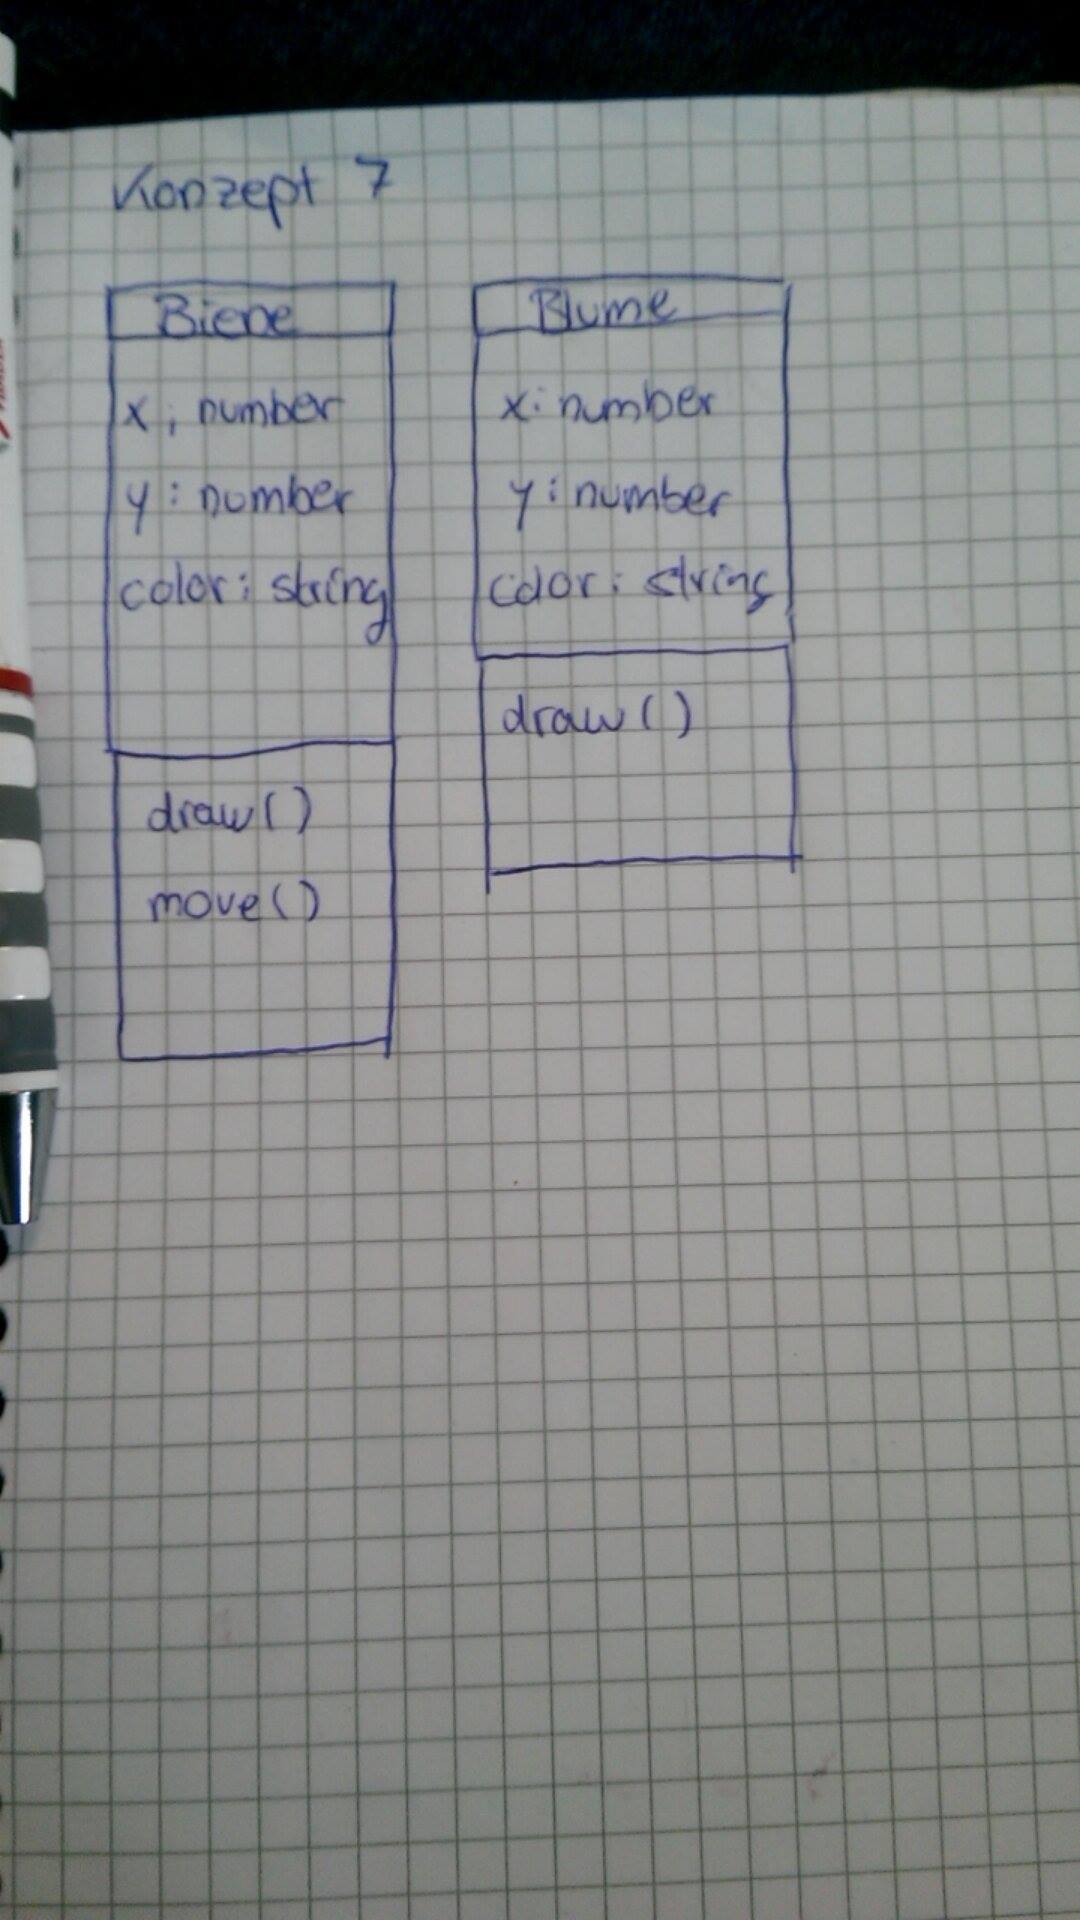 Konzept 7
Biene
x; number
y: number
color: string
draw()
move()
Blume
x: number
y: number
color: string
draw()